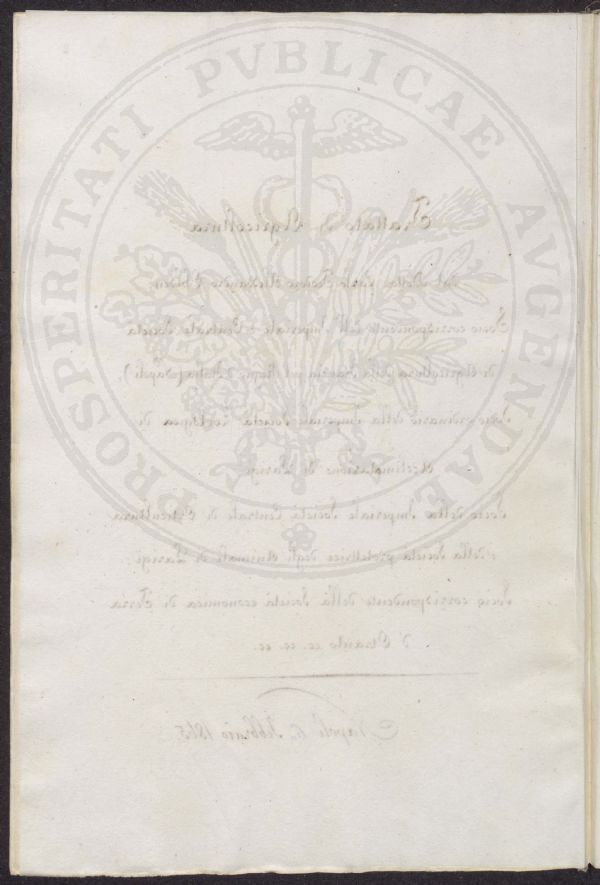 PROSPERITATI PVBLICAE AVGENDAE
Trattato di Agricoltura
dal Dottor Carlo Amedeo Alessandro
Socio corrispondente dell' Imperiale e Centrale Società
di Agricoltura della Francia nel Regno d'Italia (Napoli)
Socio ordinario della Imperiale Società Zoologica di
Acclimatazione di Parigi
Socio della Imperiale Società Centrale di Orticultura
e della Società protettrice degli Animali di Parigi
Socio corrispondente della Società economica di Terra
d'Otranto ec. ec. ec.
Napoli 6 febbraio 1865